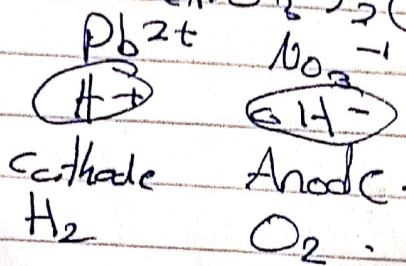 Pb2+ NO3 -1
H+ OH-
Cathode Anode.
H2 O2.